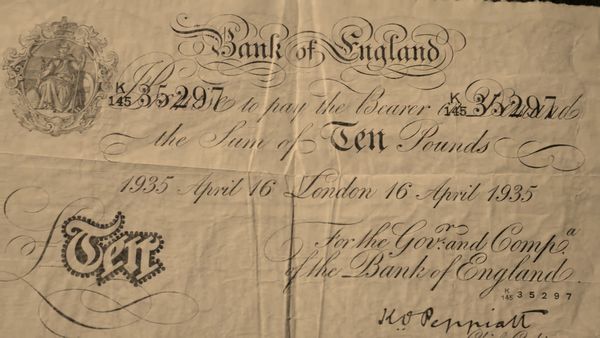 Bank of England
K
145 35297 K
145 35297
I Promise to pay the Bearer on Demand
the Sum of Ten Pounds
1935 April 16 London 16 April 1935
For the Govr. and Compa.
of the Bank of England.
£Ten
K
145 35297
K O Peppiatt